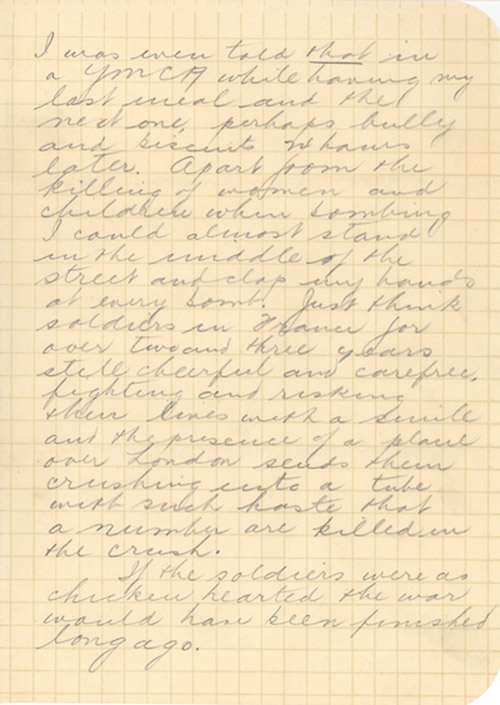 I was even told that in
a YMCA while having my
last meal and the
next one, perhaps bully
and biscuits 24 hours
later. Apart from the
killing of women and
children when bombing
I could almost stand
in the middle of the
street and clap my hands
at every bomb. Just think
soldiers in France for
over two and three years
still cheerful and carefree,
fighting and risking
their lives with a smile
and the presence of a plane
over London sends them
crushing into a tube
with such haste that
a number are killed in
the crush.
If the soldiers were as
chicken hearted the war
would have been finished
long ago.